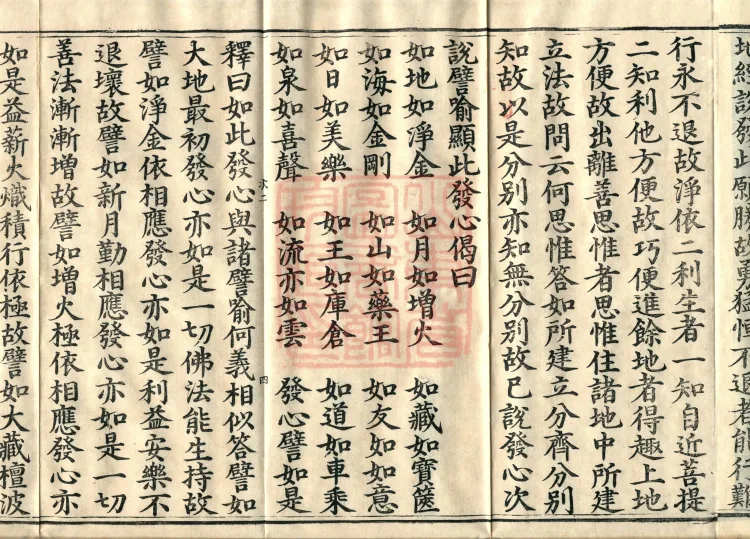 經說發此願勝故勇猛恒不退者能行難
行永不退故淨依二利生者一知自近菩提
二知利他方便故巧便進餘地者得趣上地
方便故出離善思惟者思惟住諸地中所建
立法故問云何思惟答如所建立分齊分別
知故以是分別亦知無分別故已說發心次
說譬喻顯此發心偈曰
如地如淨金　如月如增火　如藏如寶篋
如海如金剛　如山如藥王　如友如如意
如日如美樂　如王如庫倉　如道如車乘
如泉如喜聲　如流亦如雲　發心譬如是
二　四
釋曰如此發心與諸譬喻何義相似答譬如
大地最初發心亦如是一切佛法能生持故
譬如淨金依相應發心亦如是利益安樂不
退壞故譬如新月勤相應發心亦如是一切
善法漸漸增故譬如增火極依相應發心亦
如是益薪火熾積行依極故譬如大藏檀波